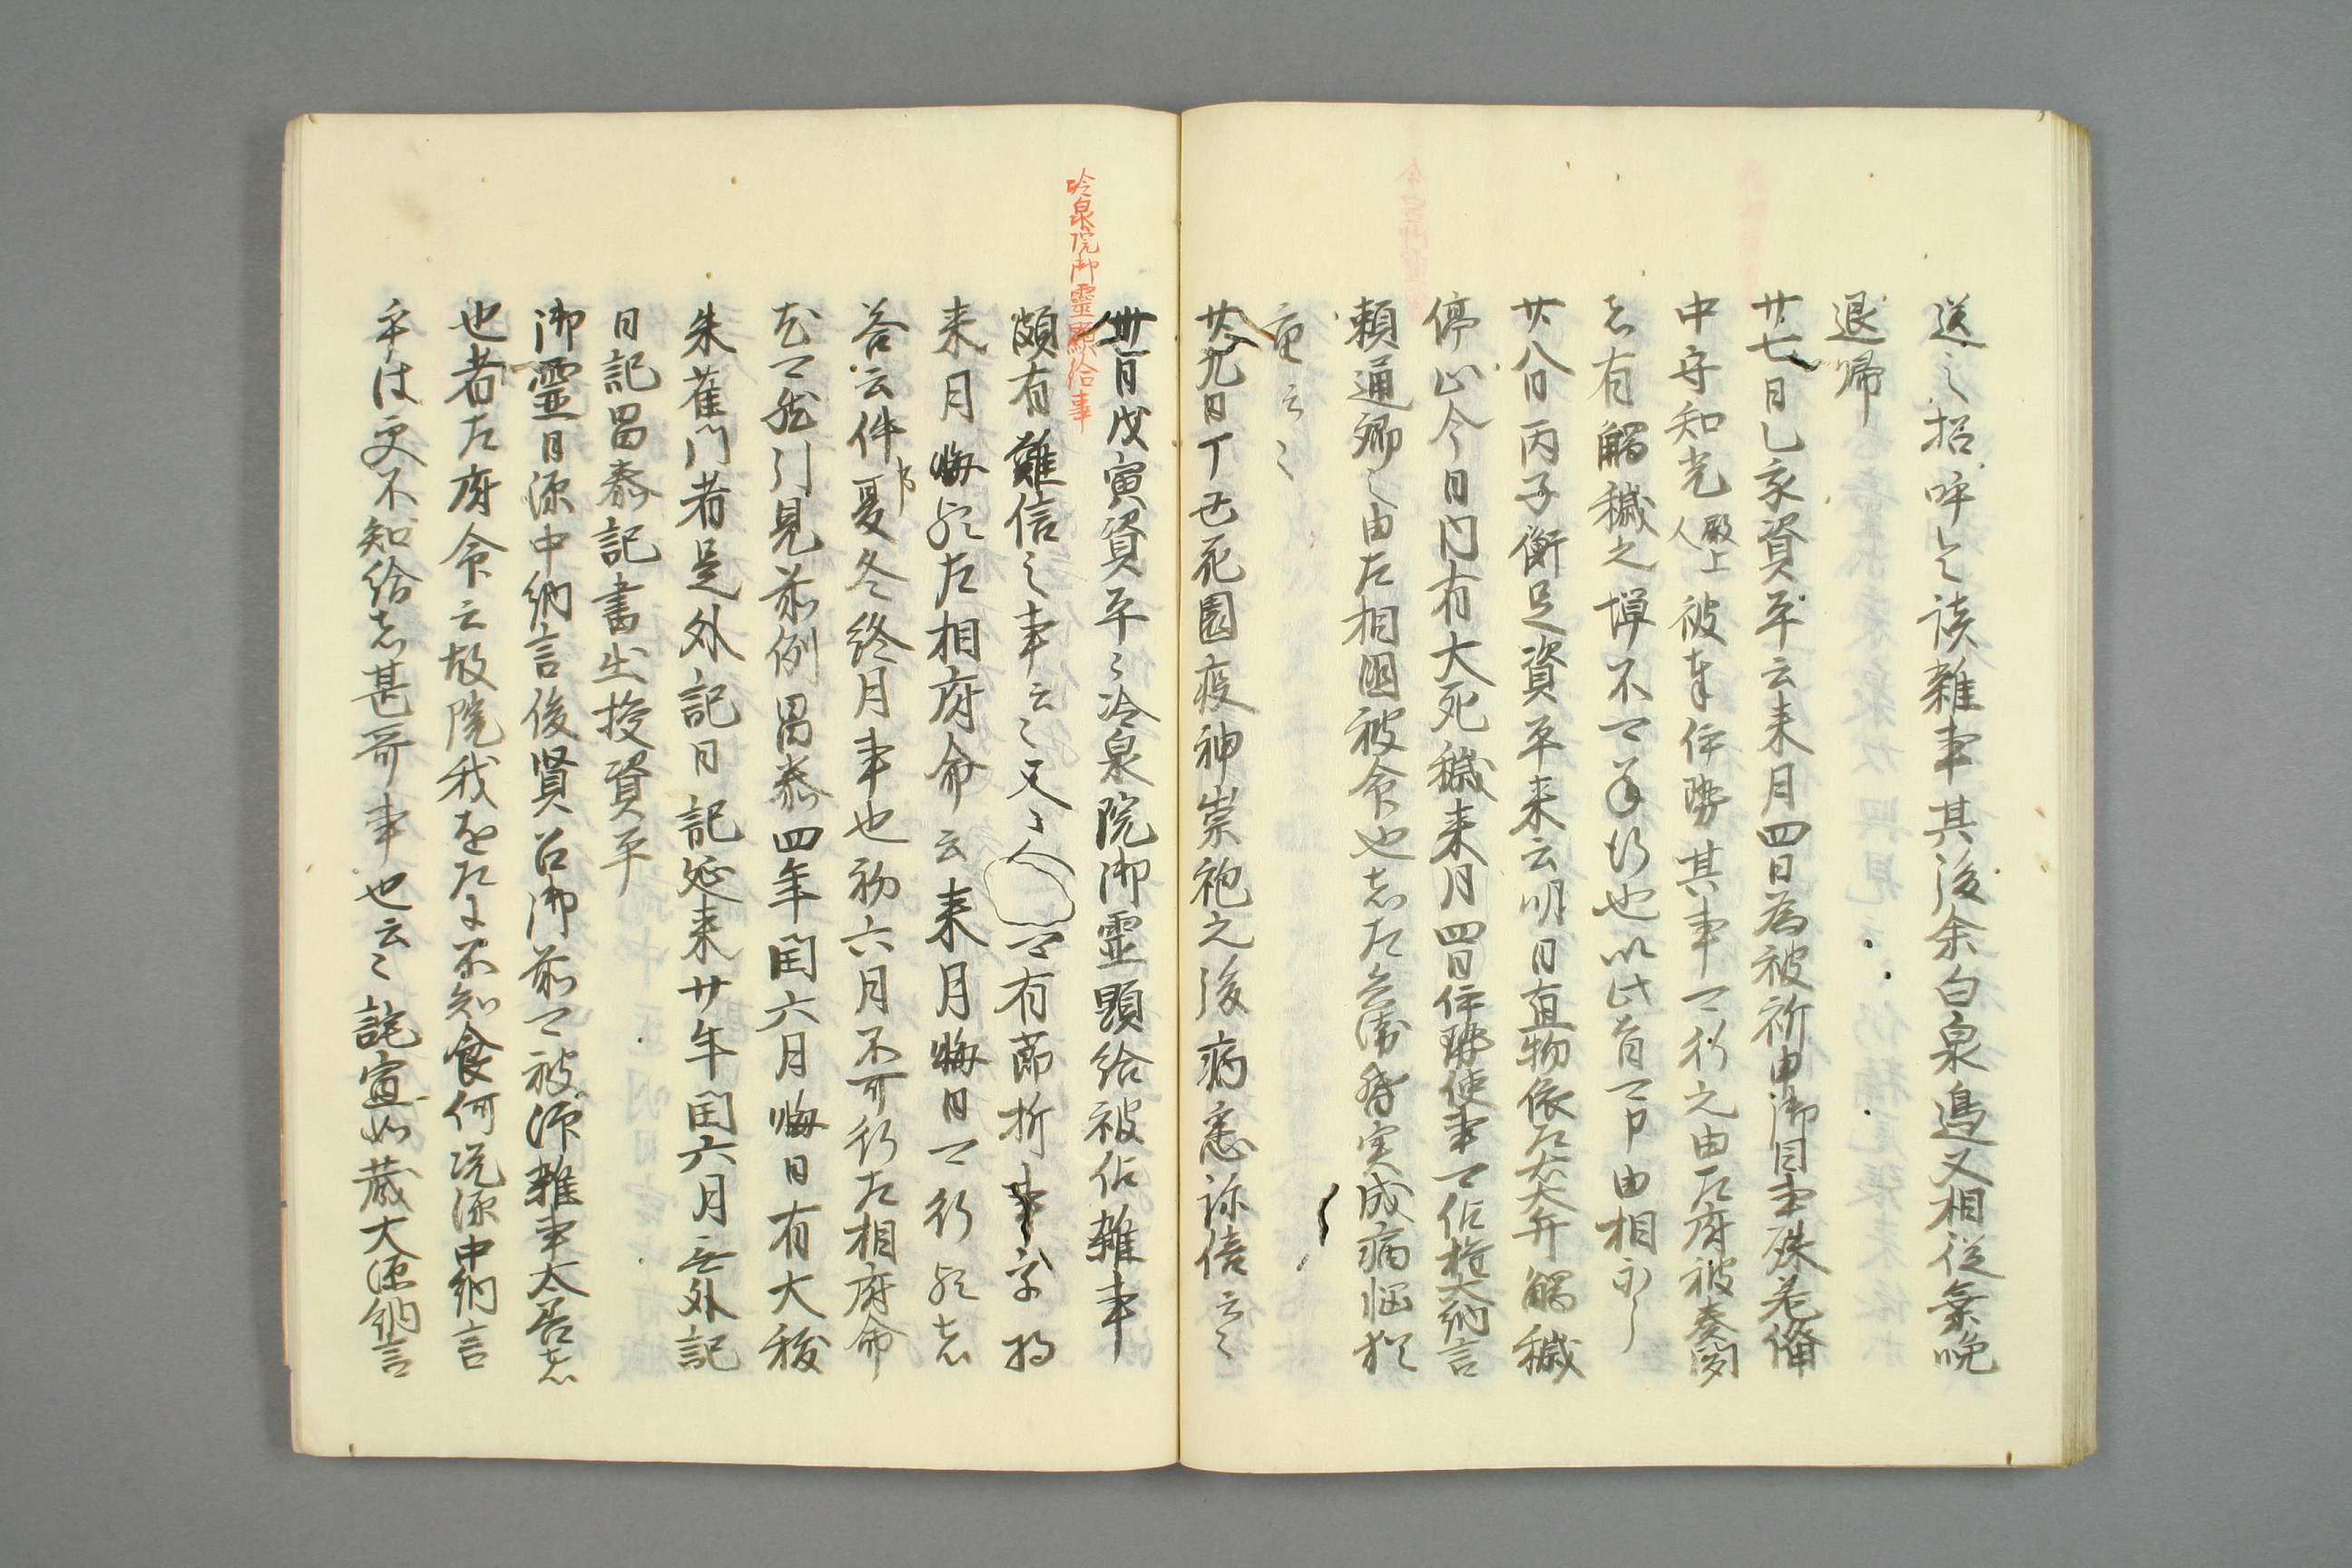 送之招呼言談雑事其後余白泉邊又相従乗晩
退歸
廿七日乙亥資平云来月四日為被祈申御目事殊差備
中守知光殿上人被奉伊勢其事可行之由左府被奏聞
者有觸穢之憚不可奉行也以此旨可申由相示了
廿八日丙子衡足資平来云明日直物依左大弁觸穢
停止今日内有大死穢来月四日伊勢使事可仰権大納言
頼通卿之由左相國被命也者左兵衛督実成病悩猶
重云々
廿九日丁丑花園疫神崇祀之後病患弥倍云々
卅日戊寅資平云冷泉院御靈顕給被仰雑事
冷泉院御靈顕給事
頗有難信之事云々又々人可有節折事宇相
来月晦歟左相府命云来月晦日可行歟者
答云件事夏冬終月事也初六月不可行左相府命
尤可然引見前例昌泰四年閏六月晦日有大秡
朱雀門者是外記日記延来廿年閏六月無外記
日記昌泰記書出授資平
御靈月源中納言俊賢召御前可被源雑事太呂者
也者左府命云故院我をたに不知食何况源中納言
乎は更不知給者甚奇事也云々託宣如蔵大源納言